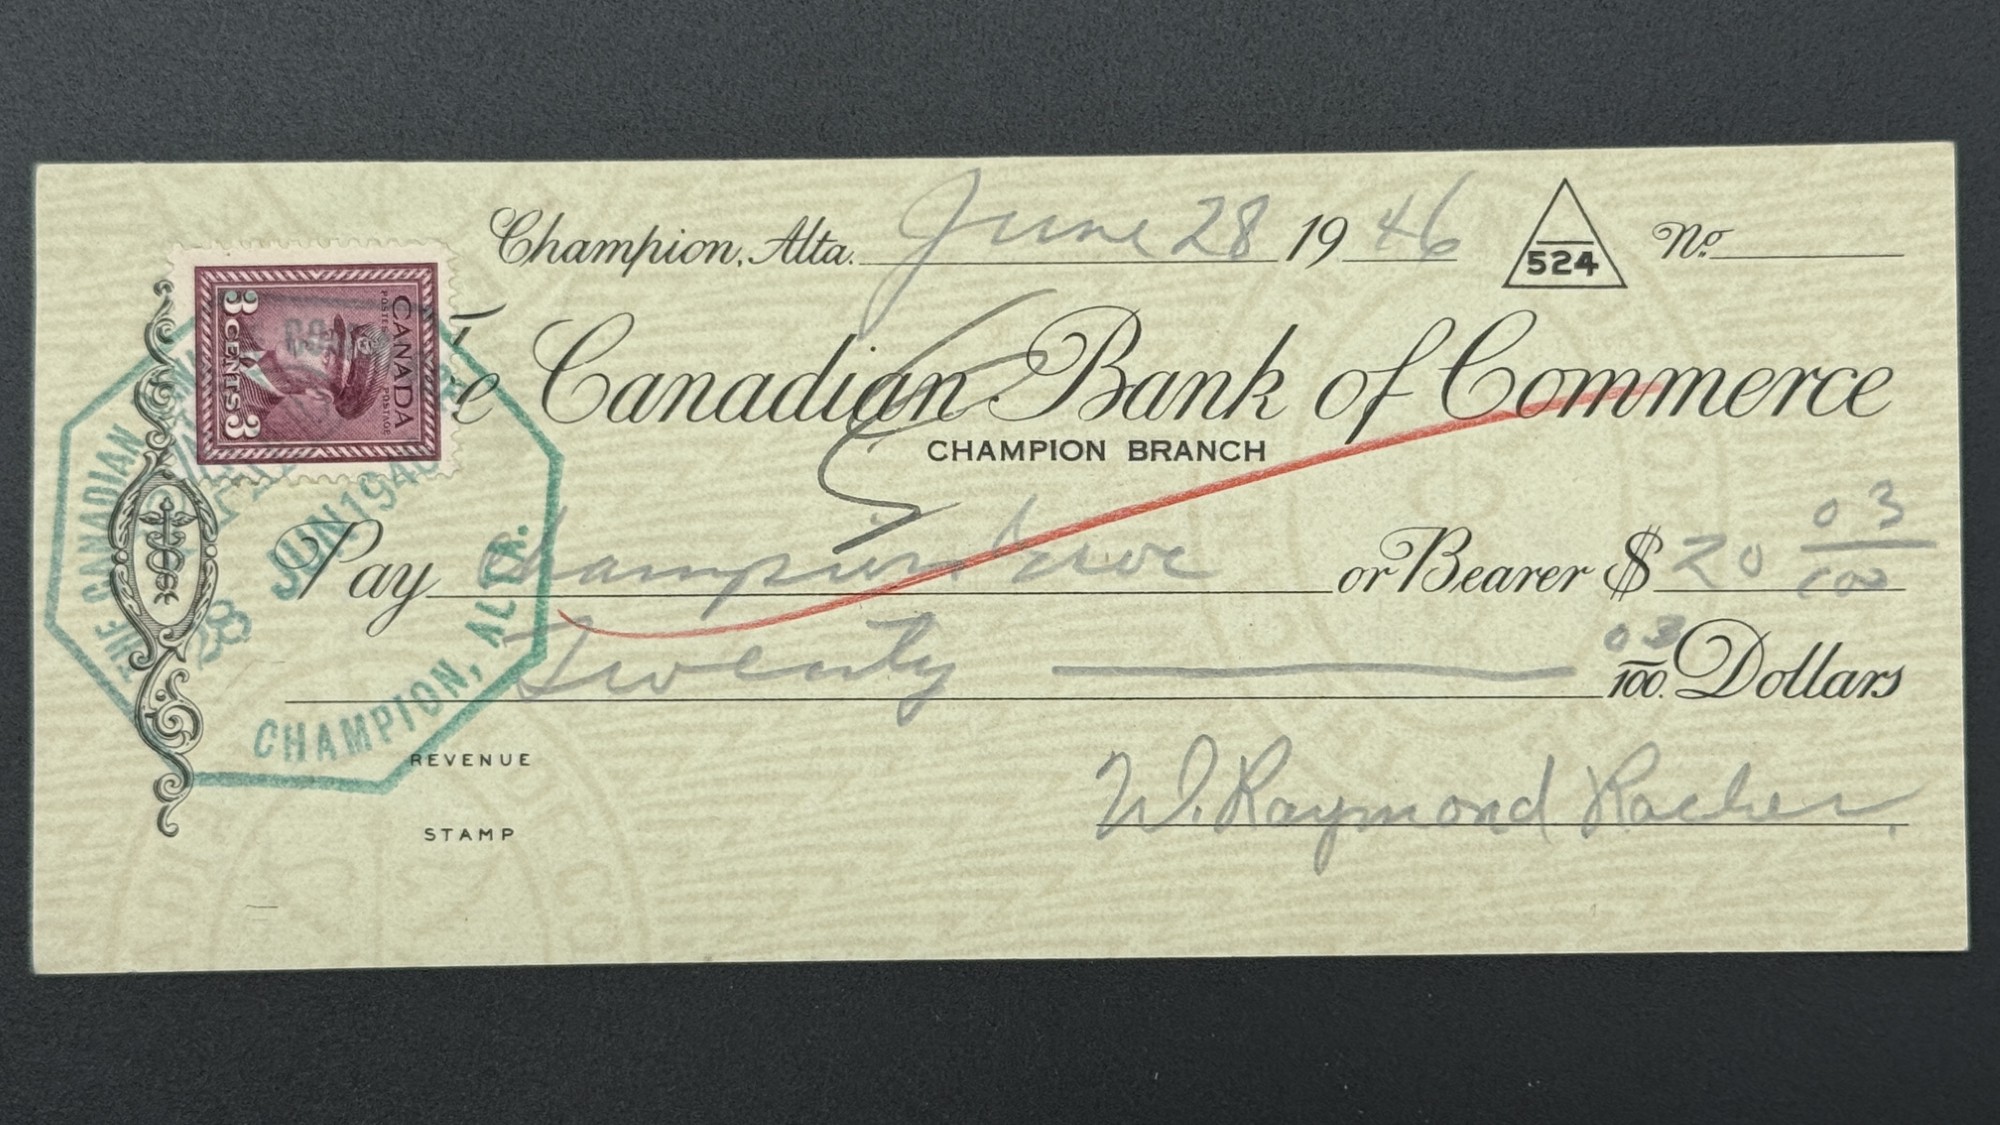 Champion, Alta. June 28 19 46
524
No.
The Canadian Bank of Commerce
CHAMPION BRANCH
Pay Champion or Bearer $ 20 03/100
Twenty 03/100 Dollars
W. Raymond
REVENUE
STAMP
CANADA
POSTES POSTAGE
3 CENTS 3
THE CANADIAN
28 JUN 1946
CHAMPION, ALTA.